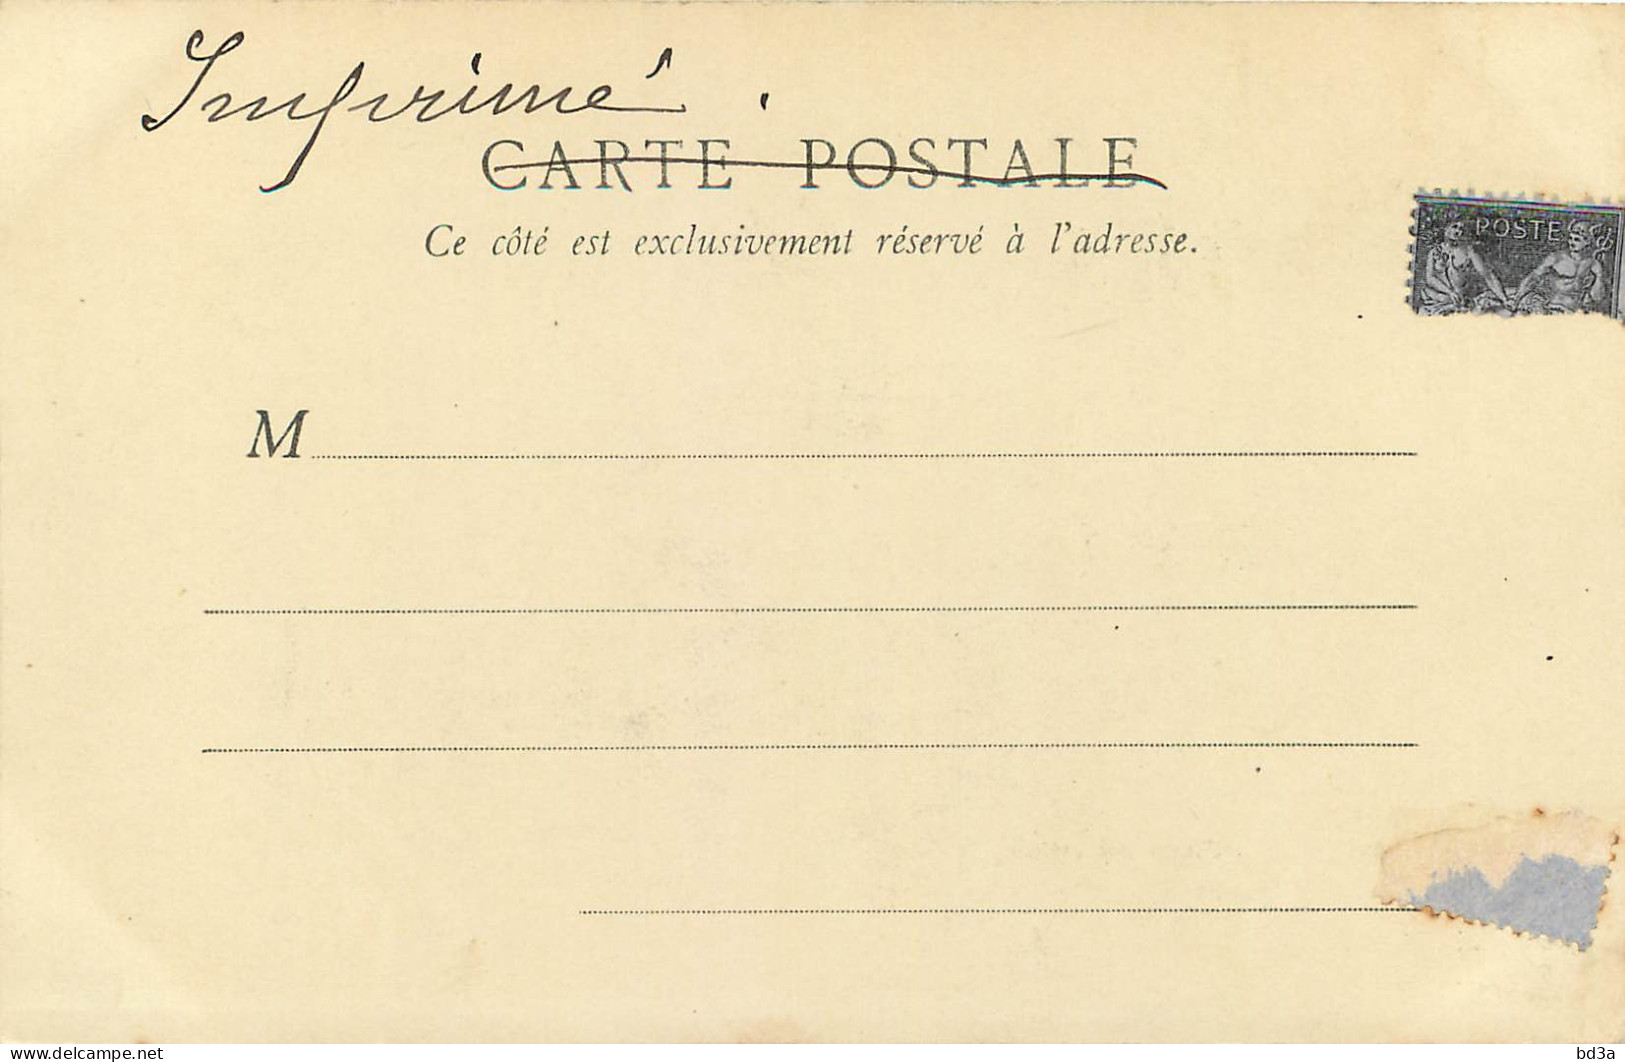 Imprimé.
CARTE POSTALE
Ce côté est exclusivement réservé à l'adresse.
POSTE
M
www.delcampe.net
bd3a